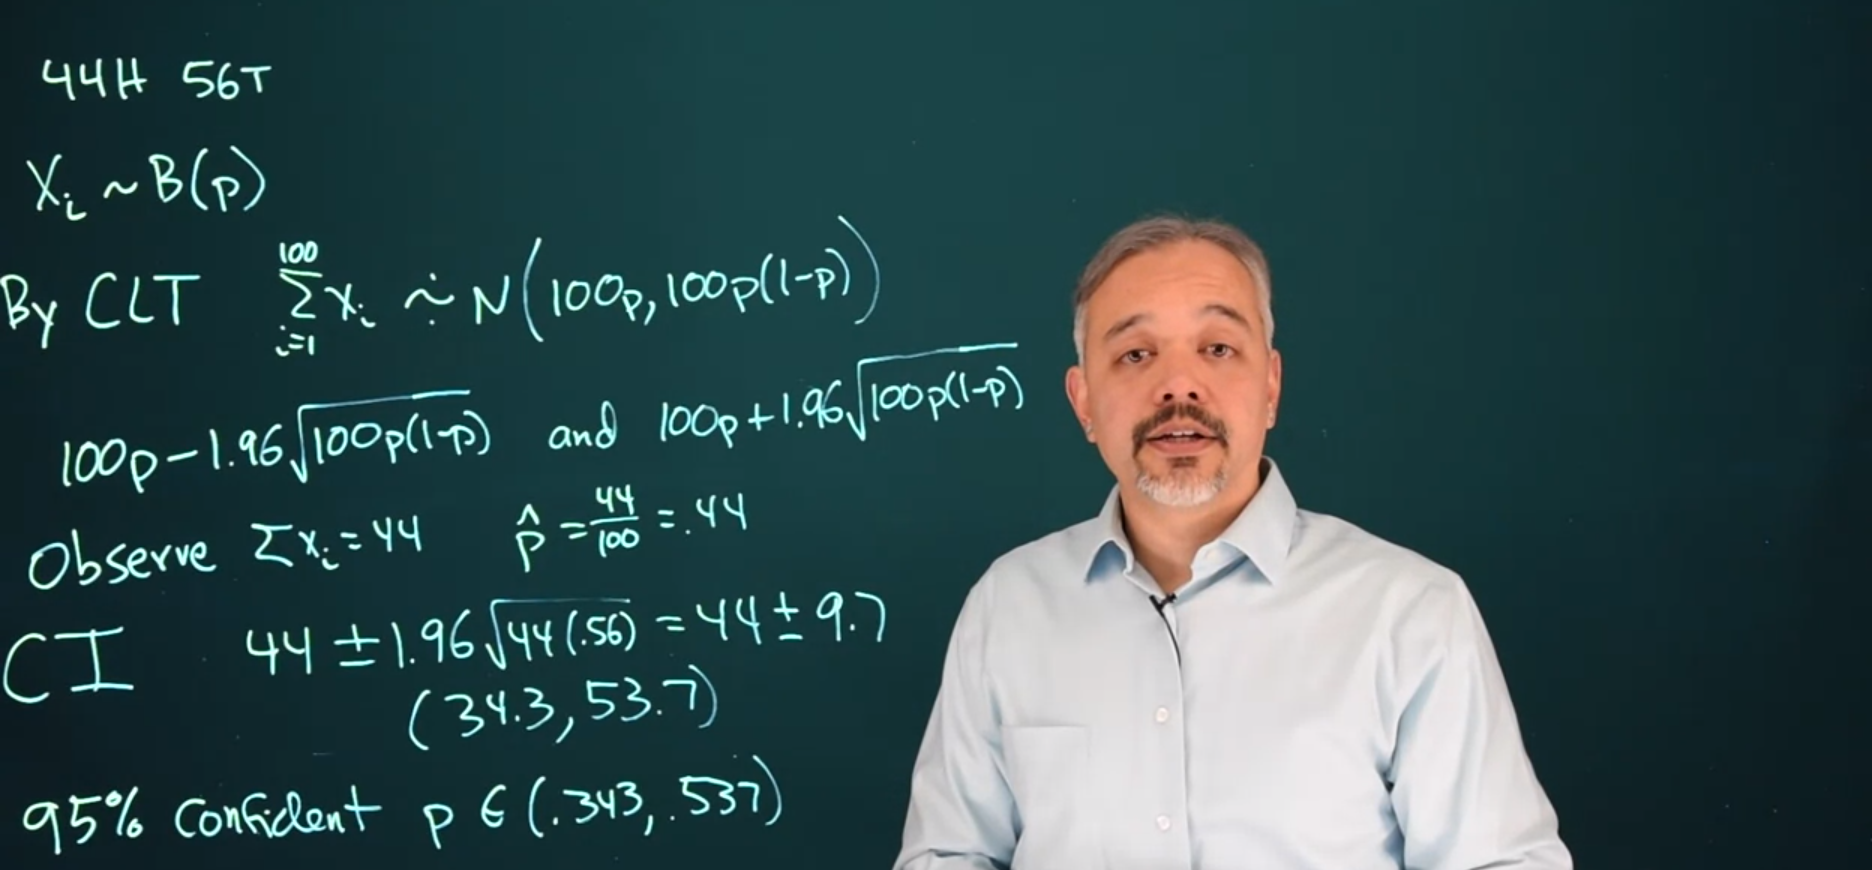 44H 56T
Xᵢ ~ B(p)
By CLT ∑_{i=1}^{100} xᵢ ∻ N(100p, 100p(1-p))
100p - 1.96√(100p(1-p)) and 100p + 1.96√(100p(1-p))
Observe Σxᵢ = 44 p̂ = 44/100 = .44
CI 44 ± 1.96√(44(.56)) = 44 ± 9.7
(34.3, 53.7)
95% Confident p ∈ (.343, .537)